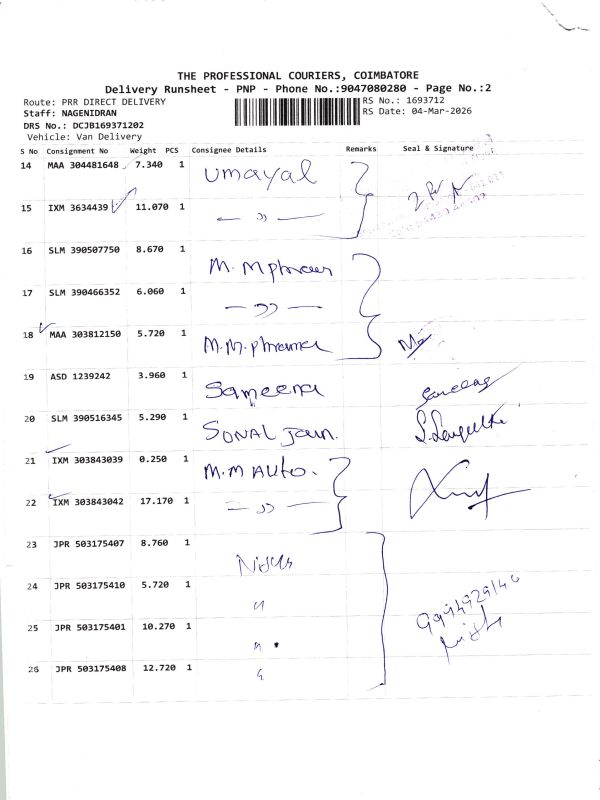 THE PROFESSIONAL COURIERS, COIMBATORE
Delivery Runsheet - PNP - Phone No.:9047080280 - Page No.:2
Route: PRR DIRECT DELIVERY RS No.: 1693712
Staff: NAGENIDRAN RS Date: 04-Mar-2026
DRS No.: DCJB169371202
Vehicle: Van Delivery
S No Consignment No Weight PCS Consignee Details Remarks Seal & Signature
14 MAA 304481648 7.340 1 Umayal
15 IXM 3634439 11.070 1 — 〃 —
16 SLM 390507750 8.670 1
17 SLM 390466352 6.060 1 — 〃 —
18 MAA 303812150 5.720 1
19 ASD 1239242 3.960 1 Sameena
20 SLM 390516345 5.290 1 SONAL Jain.
21 IXM 303843039 0.250 1 M.M AUto.
22 IXM 303843042 17.170 1 — 〃 —
23 JPR 503175407 8.760 1
24 JPR 503175410 5.720 1 〃
25 JPR 503175401 10.270 1 〃
26 JPR 503175408 12.720 1